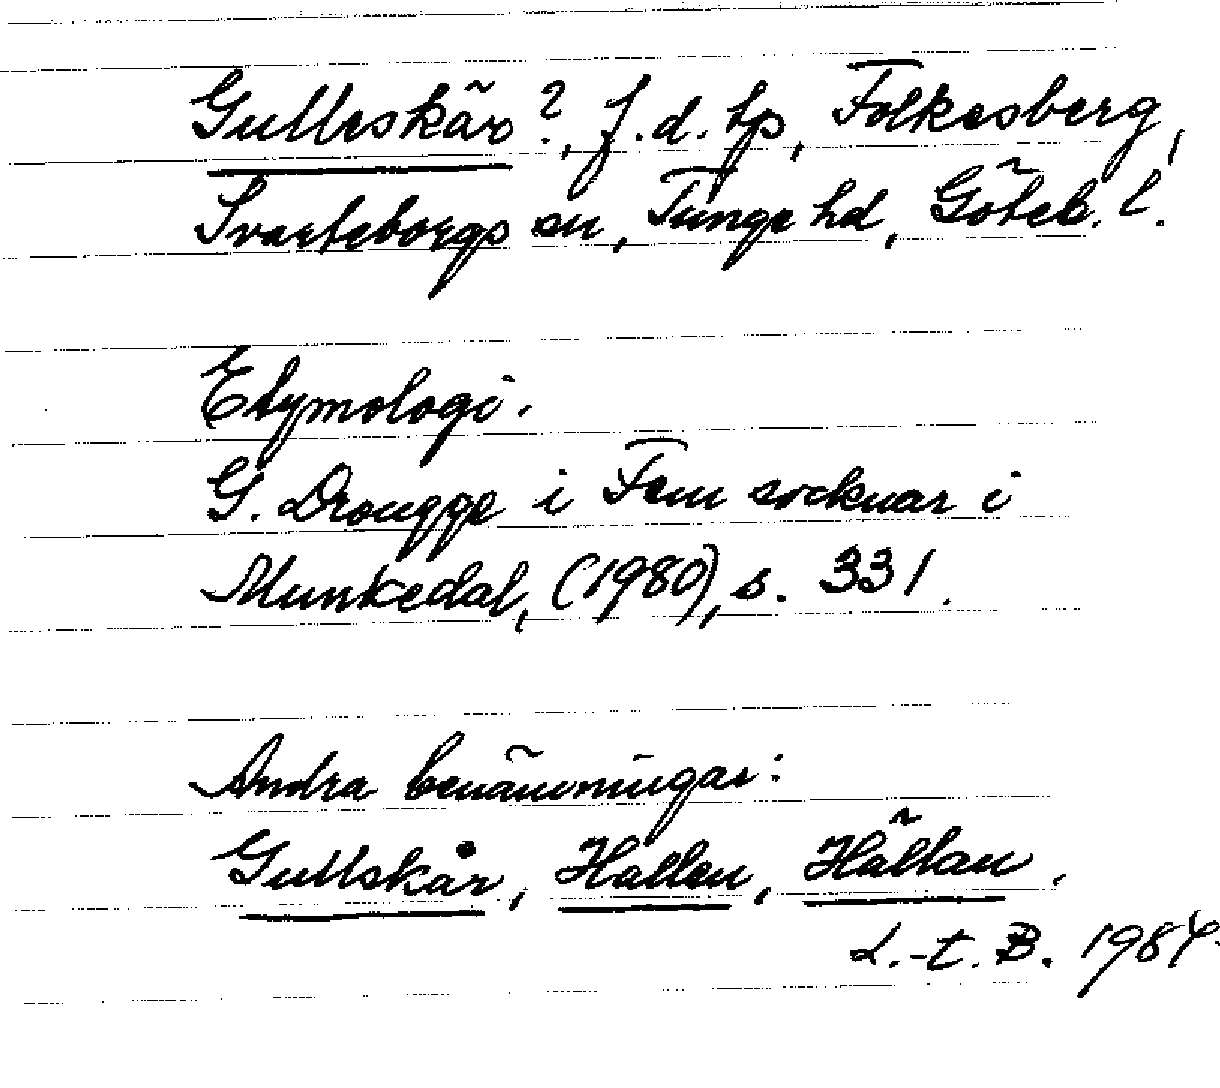 Gulleskär?, f.d. tp, Folkesberg,
Svarteborgs sn, Tunge hd, Göteb. l.
Etymologi.
G. Drougge i Fem socknar i
Munkedal, (1980), s. 331.
Andra benämningar:
Gullskår, Hallen, Hällan.
L.-t. B. 1984.